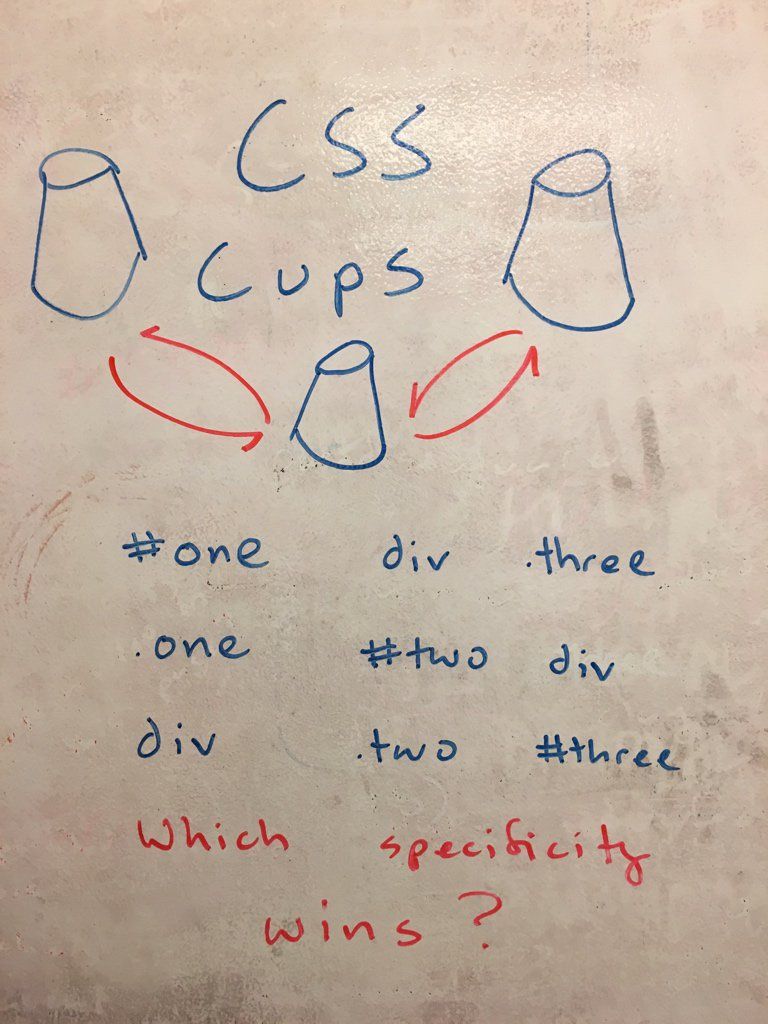 CSS
Cups
#one div .three
.one #two div
div .two #three
Which specificity
wins?